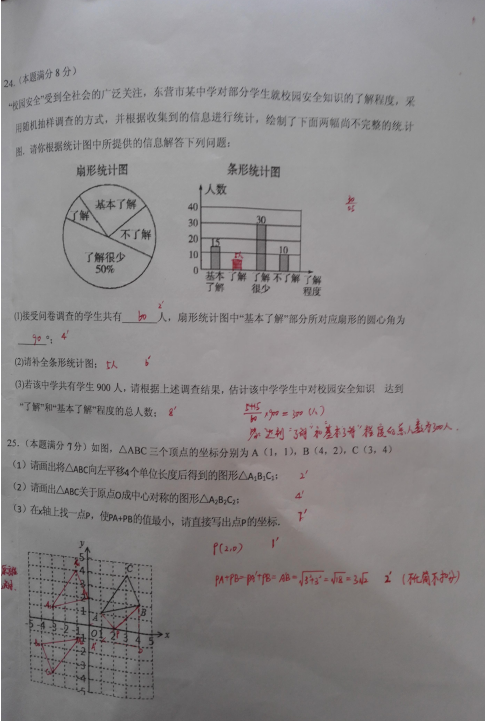 24.(本题满分8分)
“校园安全”受到全社会的广泛关注，东营市某中学对部分学生就校园安全知识的了解程度，采
用随机抽样调查的方式，并根据收集到的信息进行统计，绘制了下面两幅尚不完整的统计
图. 请你根据统计图中所提供的信息解答下列问题：
扇形统计图
条形统计图
人数
基本了解
了解
不了解
了解很少
50%
40
30
20
10
0
15
5人
30
10
基本
了解
了解
了解
很少
不了解
了解
程度
2'
(1)接受问卷调查的学生共有 60 人，扇形统计图中“基本了解”部分所对应扇形的圆心角为
90 °； 4'
(2)请补全条形统计图； 5人 6'
(3)若该中学共有学生900人，请根据上述调查结果，估计该中学学生中对校园安全知识 达到
“了解”和“基本了解”程度的总人数； 8'
5+15/60 ×900=300(人)
“达到“了解”和“基本了解”程度的总人数为300人.
25.(本题满分7分)如图，△ABC三个顶点的坐标分别为A(1，1)，B(4，2)，C(3，4)
(1)请画出将△ABC向左平移4个单位长度后得到的图形△A₁B₁C₁； 2'
(2)请画出△ABC关于原点O成中心对称的图形△A₂B₂C₂； 4'
(3)在x轴上找一点P，使PA+PB的值最小，请直接写出点P的坐标. 7'
P(2,0) 1'
PA+PB=PA'+PB=A'B=√3²+3²=√18=3√2 2' (不化简不扣分)
y
5
4
3
2
1
C
B
A
-5 -4 -3 -2 -1 O 1 2 3 4 5 x
-1
-2
-3
-4
-5